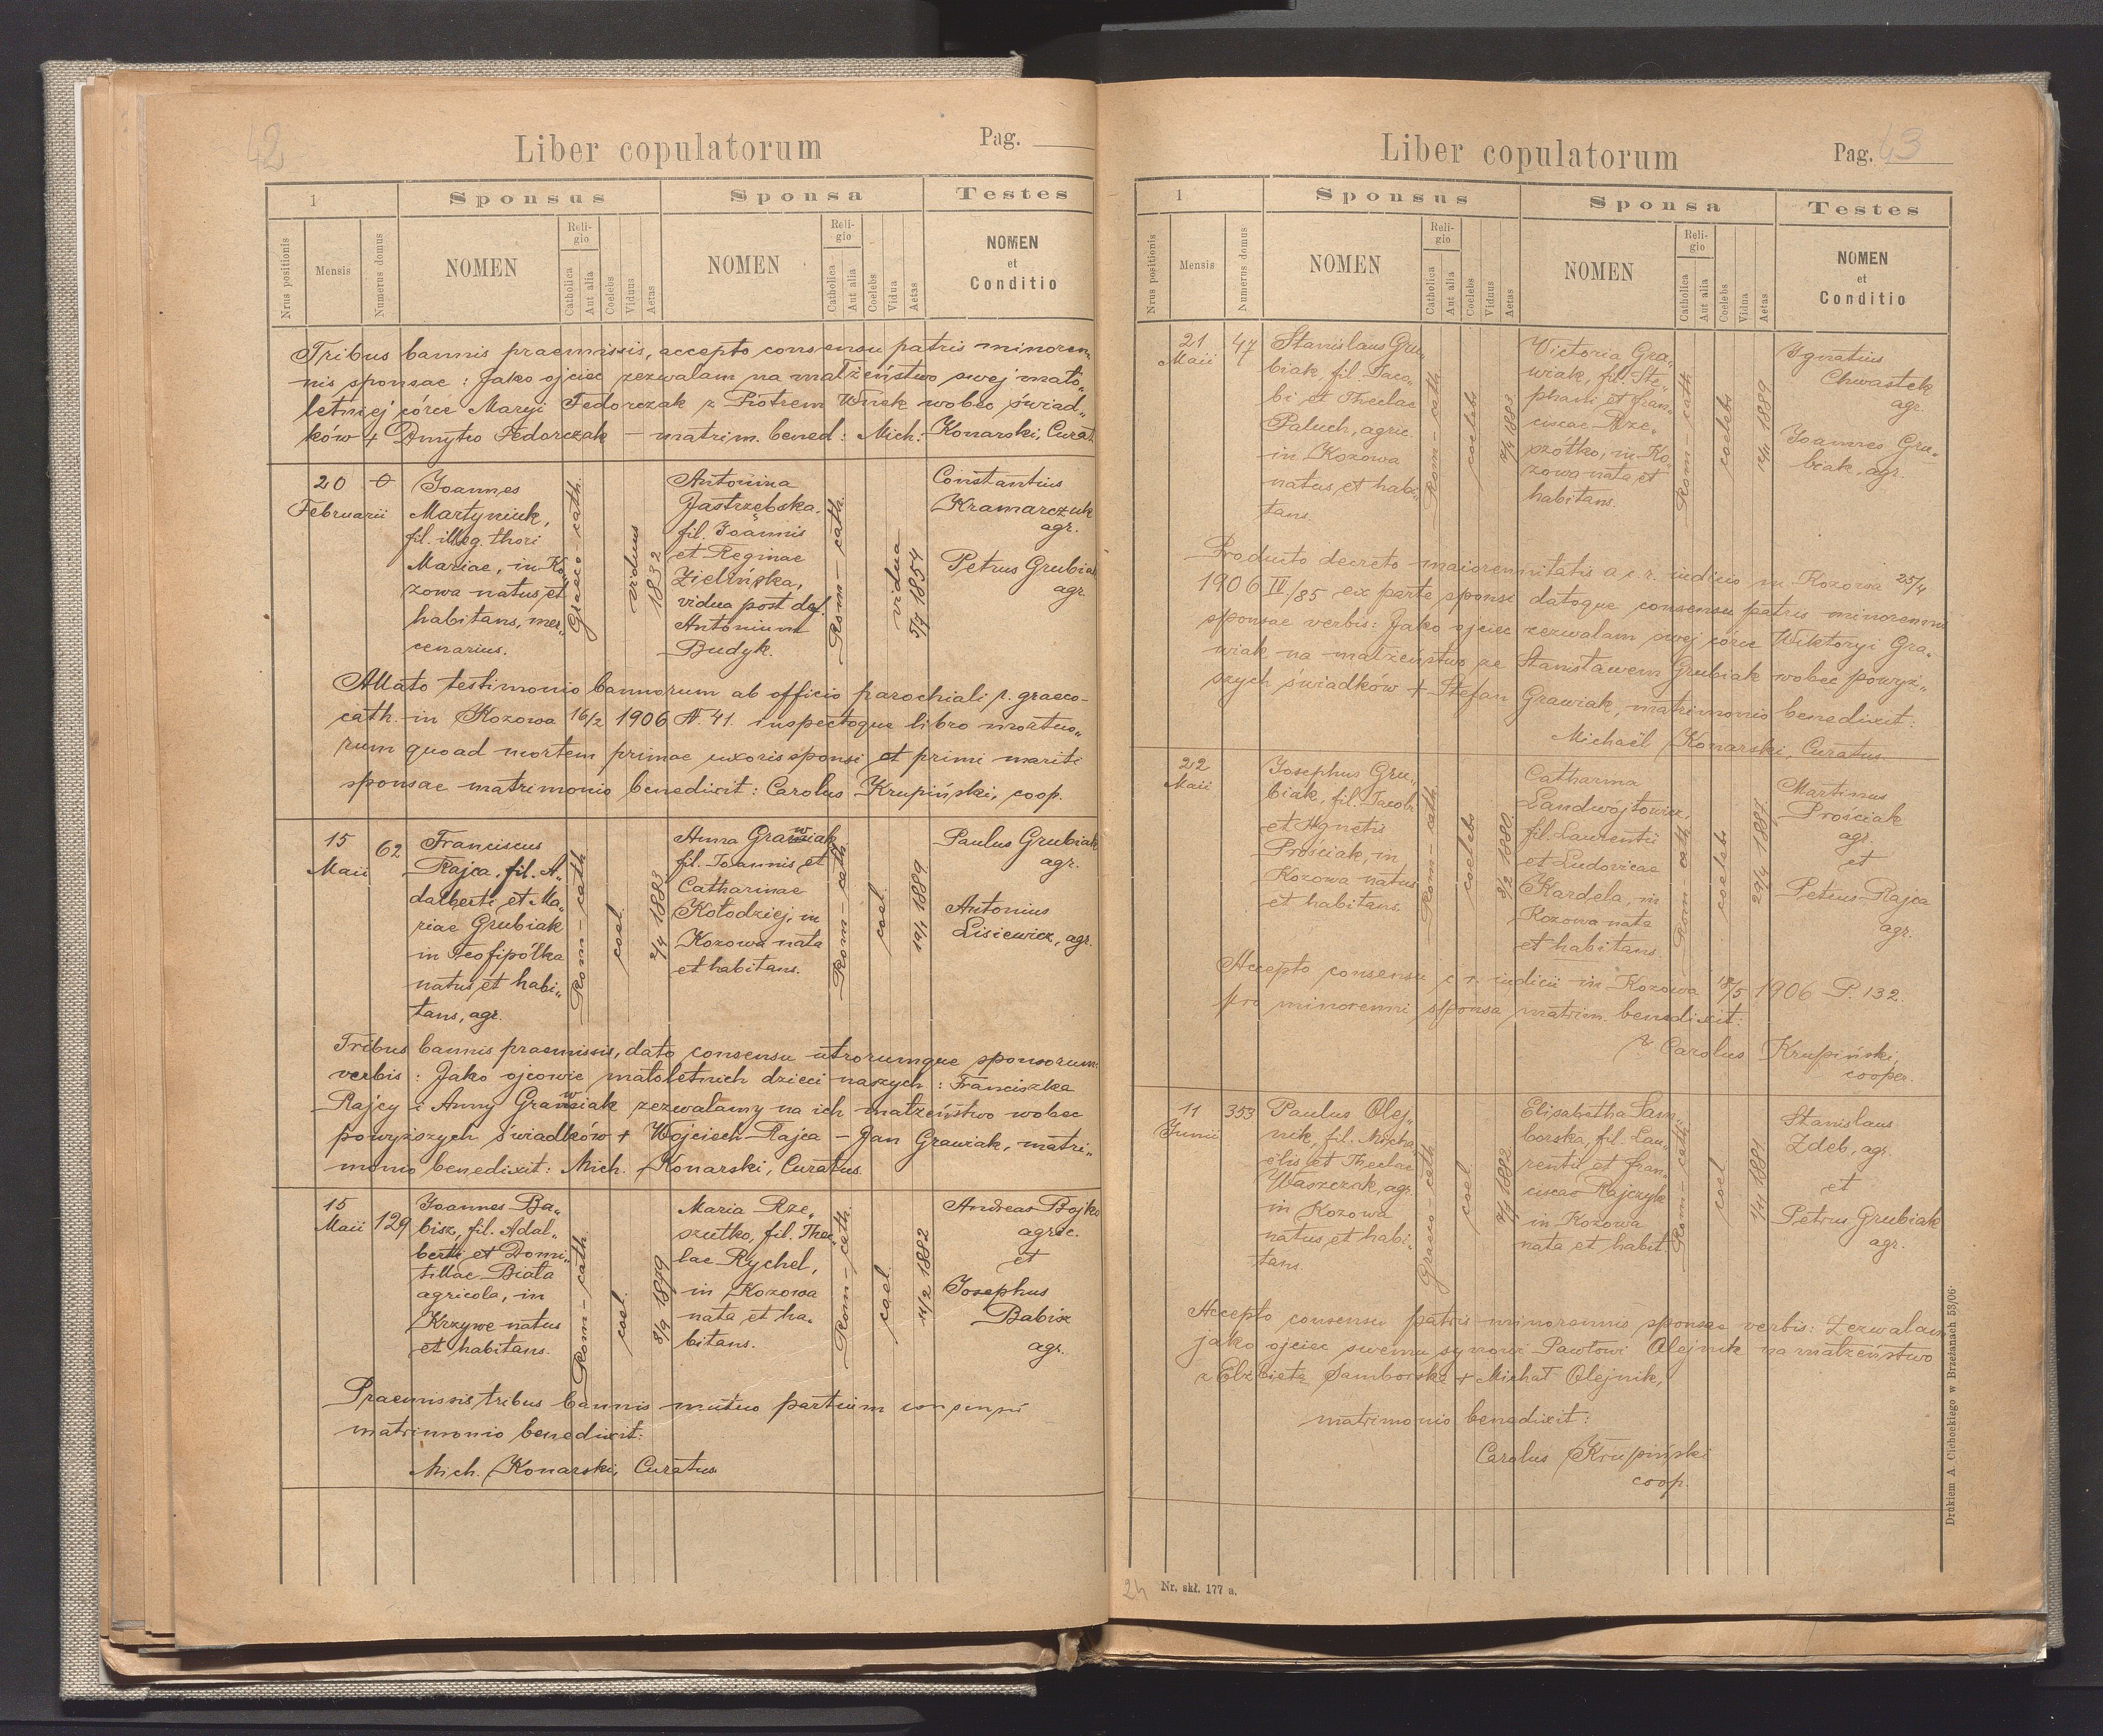 42
Liber copulatorum
Pag.
1
Sponsus
Sponsa
Testes
Nrus positionis
Mensis
Numerus domus
NOMEN
Religio
Catholica
Aut alia
Coelebs
Viduus
Aetas
NOMEN
Religio
Catholica
Aut alia
Coelebs
Vidua
Aetas
NOMEN
et
Conditio
Tribus bannis praemissis, accepto consensu patris minoren„
nis sponsae: Jako ojciec zezwalam na małżeństwo swej mało„
létniej córce Maryi Fedorczak z Piotrem Wnek wobec świad„
ków + Dmytro Fedorczak – matrim. bened: Mich. Konarski, Curat.
20
Februarii
Joannes
Martyniuk,
fil. illeg. thori
Mariae, in Ko„
zowa natus et
habitans, mer„
cenarius.
Graeco-cath.
viduus
1832
Antonina
Jastrzębska,
fil. Joannis
et Reginae
Zielińska,
vidua post def.
Antonium
Budyk.
Rom-cath.
vidua
5/7 1854
Constantius
Kramarczuk
agr.
Petrus Grubiak
agr.
Allato testimonio bannorum ab officio parochiali r. graeco-
cath. in Kozowa 16/2 1906 N. 41. inspectoque libro mortuo„
rum quoad mortem primae uxoris sponsi et primi mariti
sponsae matrimonio benedixit: Carolus Krupiński, coop.
15
Maii
62
Franciscus
Rajca, fil. A„
dalberti et Ma„
riae Grubiak
in Teofipółka
natus et habi„
tans, agr.
Rom-cath
coel.
2/4 1883
Anna Grawiak
fil. Joannis et
Catharinae
Kołodziej, in
Kozowa nata
et habitans.
Rom-cath
coel.
1889
Paulus Grubiak
agr.
Antonius
Lisiewicz, agr.
Tribus bannis praemissis, dato consensu utrorumque sponsorum
verbis: Jako ojcowie małoletnich dzieci naszych: Franciszka
Rajcy i Anny Grawiak zezwalamy na ich małżeństwo wobec
powyższych świadków + Wojciech Rajca – Jan Grawiak, matri„
monio benedixit: Mich. Konarski, Curatus.
15
Maii
129
Joannes Ba„
bisz, fil. Adal„
berti et Domi„
tillae Biała
agricola, in
Krzywe natus
et habitans.
Rom-cath
coel.
8/9 1879
Maria Rze„
szutko, fil. Thec„
lae Rychel,
in Kozowa
nata et ha„
bitans.
Rom-cath.
coel.
14/2 1882
Andreas Bojko
agric.
et
Josephus
Babisz
agr.
Praemissis tribus bannis mutuo partium consensu
matrimonio benedixit:
Mich. Konarski, Curatus
Liber copulatorum
Pag. 43
1
Sponsus
Sponsa
Testes
Nrus positionis
Mensis
Numerus domus
NOMEN
Religio
Catholica
Aut alia
Coelebs
Viduus
Aetas
NOMEN
Religio
Catholica
Aut alia
Coelebs
Vidua
Aetas
NOMEN
et
Conditio
21
Maii
47
Stanislaus Gru„
biak, fil. Jaco„
bi et Theclae
Paluch, agric.
in Kozowa
natus et habi„
tans.
Rom-cath
coelebs
1883
Victoria Gra„
wiak, fil. Ste„
phani et Fran„
ciscae Rze„
szótko, in Ko„
zowa nata et
habitans.
Rom-cath
coelebs
1889
Ignatius
Chwastek
agr.
Joannes Gru„
biak, agr.
Producto decreto maiorennitatis a c. r. iudicio in Kozowa 25/4
1906 IV/85 ex parte sponsi datoque consensu patris minorennis
sponsae verbis: Jako ojciec zezwalam swej córce Wiktoryi Gra„
wiak na małżeństwo ze Stanisławem Grubiak wobec powyż„
szych świadków + Stefan Grawiak, matrimonio benedixit:
Michaël Konarski, Curatus
22
Maii
Josephus Gru„
biak, fil. Jacobi
et Agnetis
Prościak, in
Kozowa natus
et habitans.
Rom-cath
coelebs
8/2 1880.
Catharina
Landwójtowicz,
fil. Laurentii
et Ludovicae
Kardela, in
Kozowa nata
et habitans.
Rom cath
coelebs
29/4 1887
Martinus
Prościak
agr.
et
Petrus Rajca
agr.
Accepto consensu c. r. iudicii in Kozowa 18/5 1906 P. 132.
pro minorenni sponsa matrim. benedixit:
Carolus Krupiński,
cooper.
11
Junii
353
Paulus Olej„
nik, fil. Micha„
ëlis et Theclae
Waszczak, agr.
in Kozowa
natus et habi„
tans.
Graeco-cath.
coel.
1882
Elisabetha Sam„
borska, fil. Lau„
rentii et Fran„
ciscae Rajczyk
in Kozowa
nata et habit.
Rom-cath.
coel
1881
Stanislaus
Zdeb, agr.
et
Petrus Grubiak
agr.
Accepto consensu patris minorennis sponsae verbis: Zezwalam
jako ojciec swemu synowi Pawłowi Olejnik na małżeństwo
z Elżbietą Samborską + Michał Olejnik,
matrimonio benedixit:
Carolus Krupiński
coop.
Drukiem A. Cichockiego w Brzeżanach 53/06.
24
Nr. skł. 177 a.